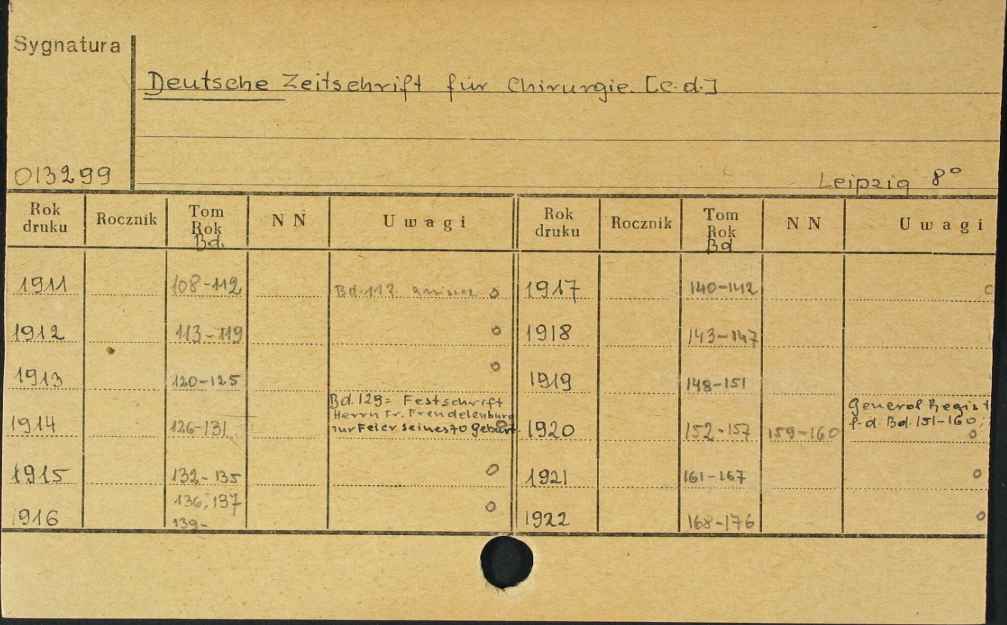 Sygnatura
Deutsche Zeitschrift für Chirurgie. [c.d.]
013299
Leipzig 8°
Rok druku Rocznik Tom Rok Bd. NN Uwagi Rok druku Rocznik Tom Rok Bd NN Uwagi
1911 108-112 Bd. 112 o 1917 140-142
1912 113-119 o 1918 143-147
1913 120-125 o 1919 148-151
1914 126-131 Bd. 129 = Festschrift 1920 152-157 159-160 General Regist
Herrn Fr. Trendelenburg f-d. Bd. 151-160;
zur Feier seines 70 Geburt o
1915 132-135 o 1921 161-167 o
1916 136, 137 o 1922 168-176 o
139-